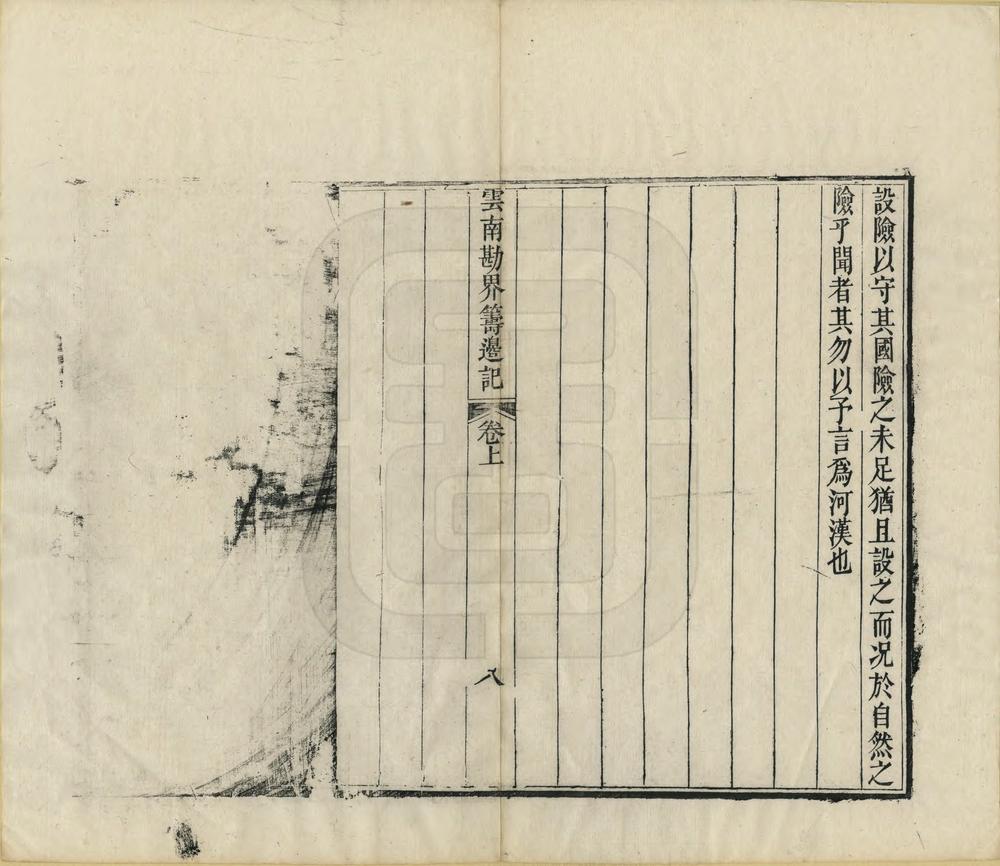 設險以守其國險之未足猶且設之而况於自然之
險乎聞者其勿以予言爲河漢也
雲南勘界籌邊記
卷上
八